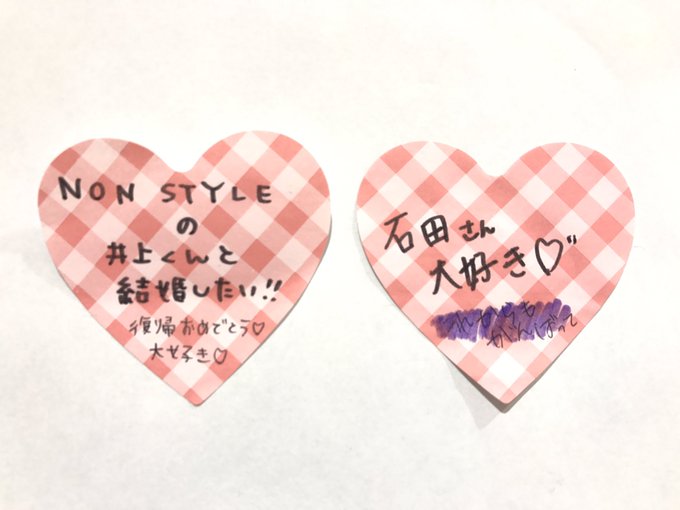 NON STYLE
の
井上くんと
結婚したい!!
復帰おめでとう♡
大好き♡
石田さん
大好き♡
これからも
がんばって